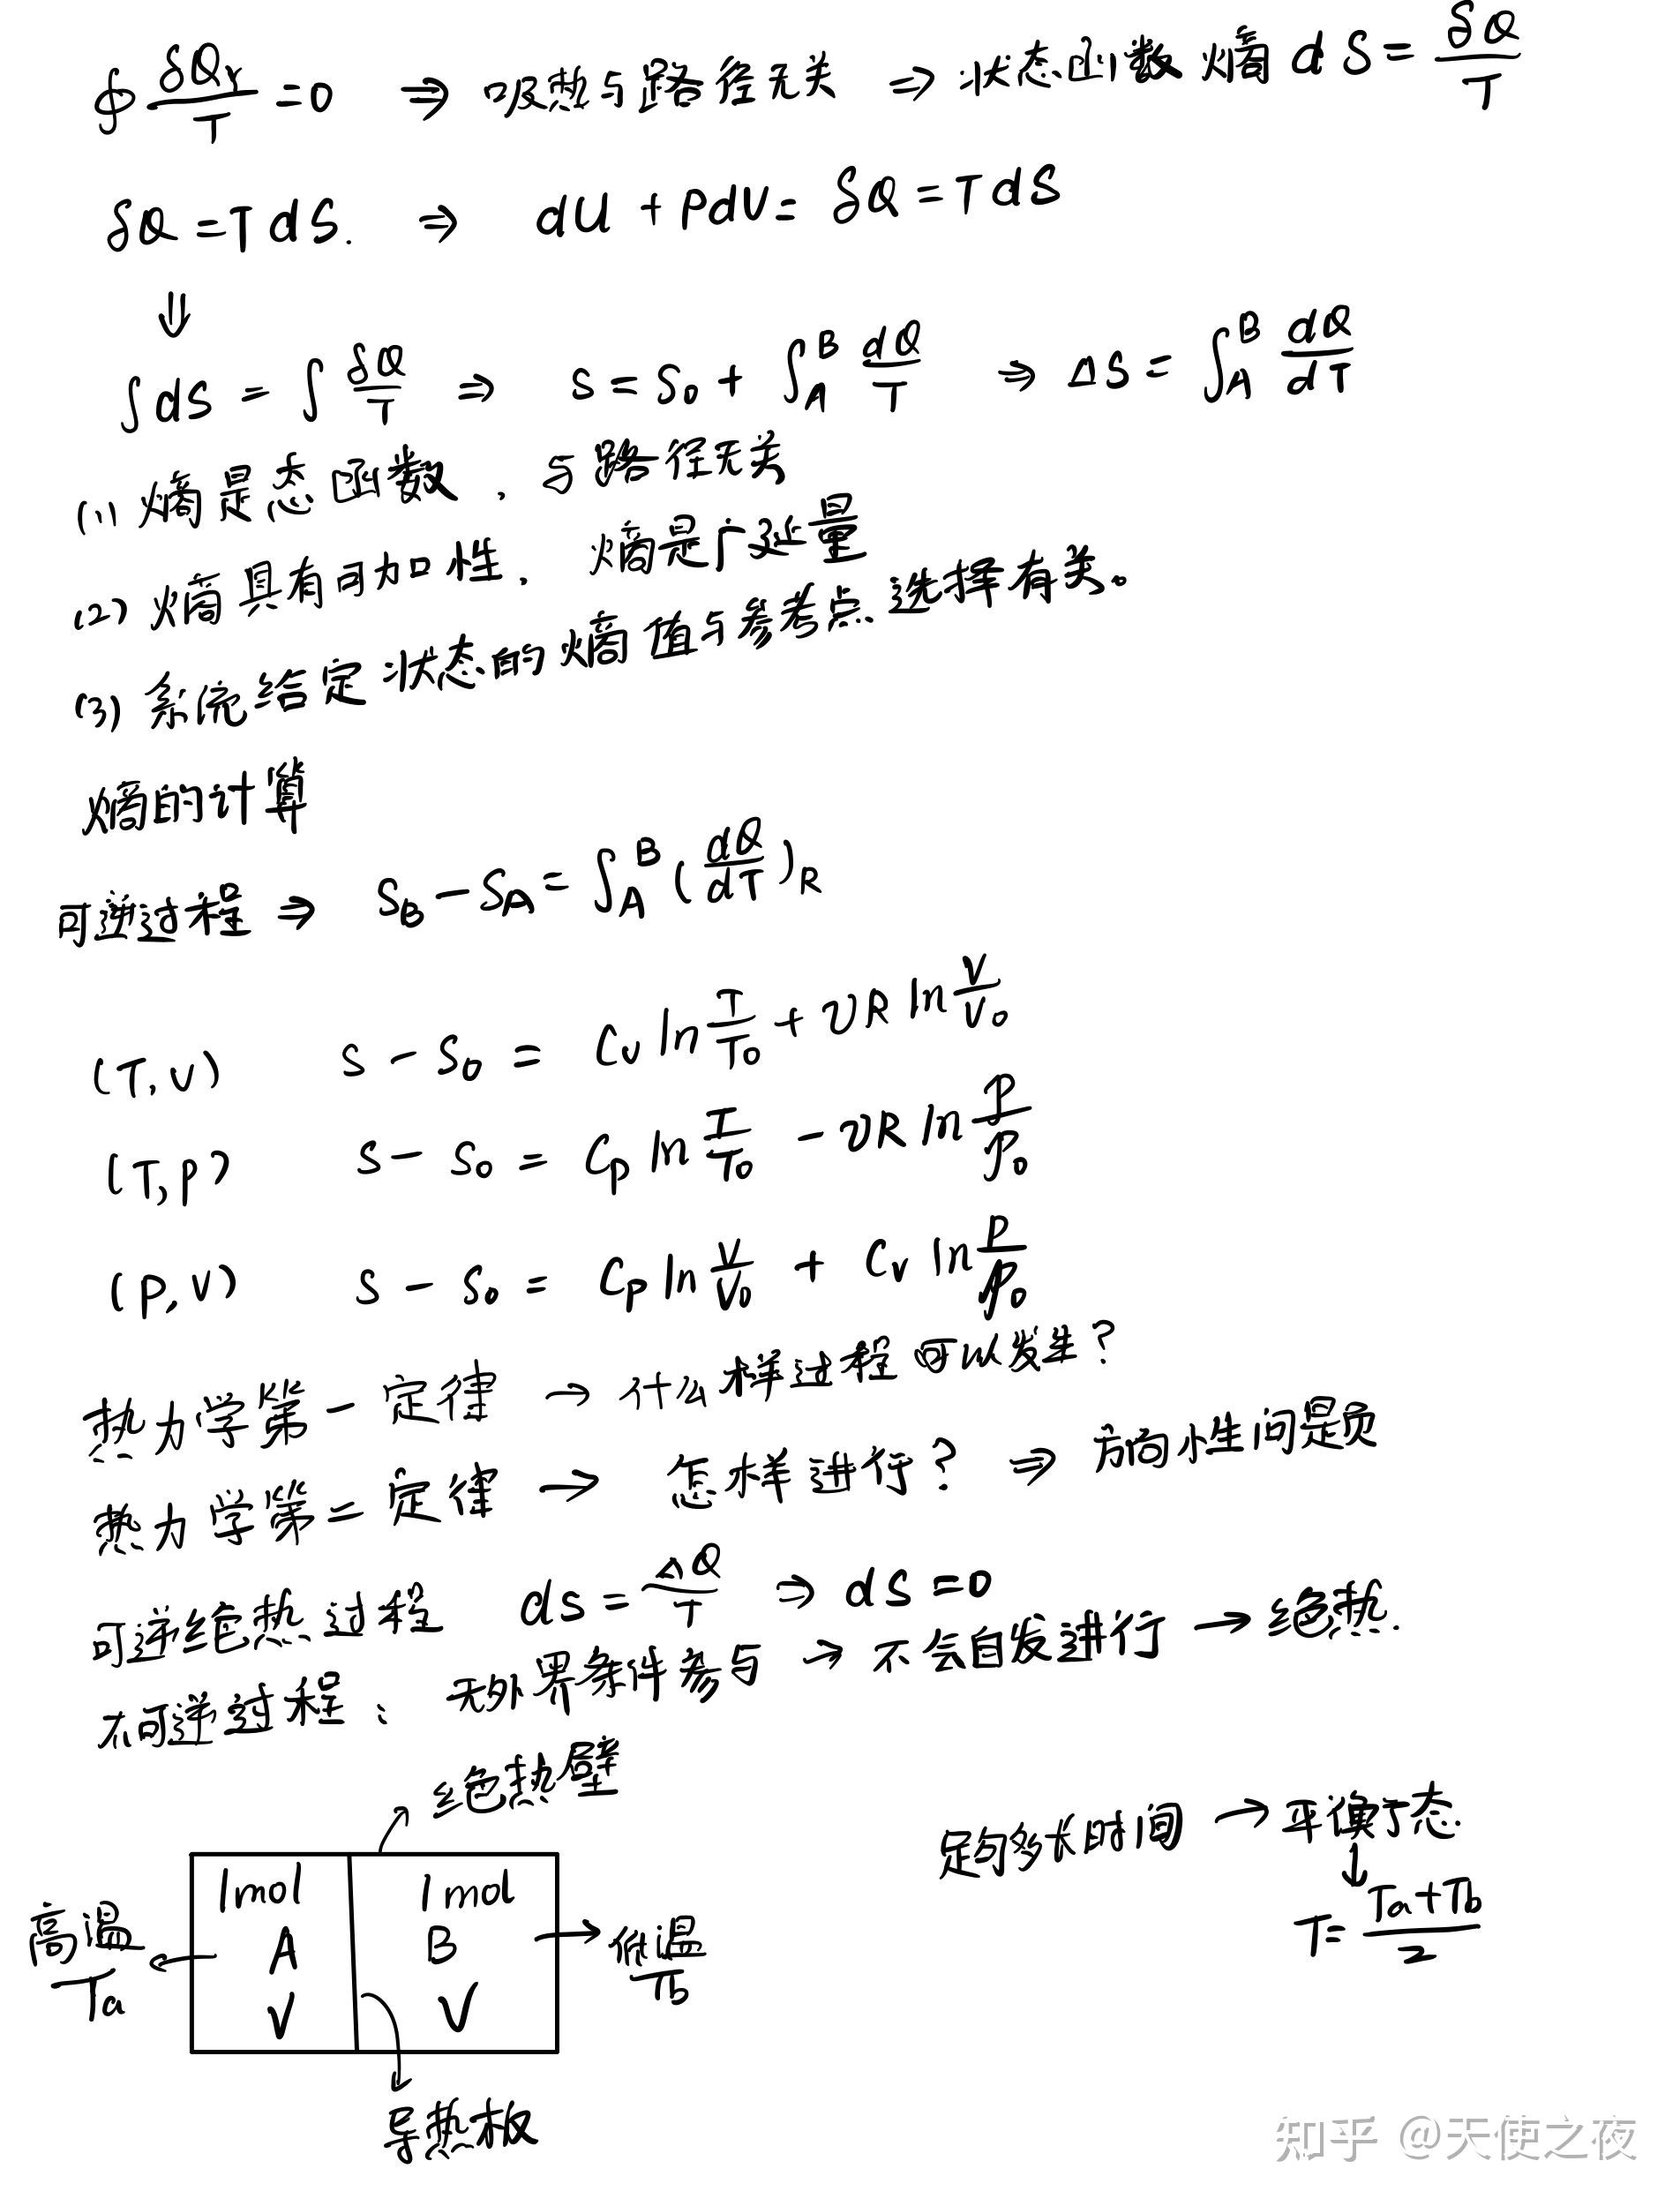 ∮ δQr/T = 0 ⇒ 吸热与路径无关 ⇒ 状态函数 熵 dS = δQ/T
δQ = TdS. ⇒ dU + PdV = δQ = TdS
⇓
∫dS = ∫ δQ/T ⇒ S = S₀ + ∫_A^B dQ/T ⇒ ΔS = ∫_A^B dQ/dT
(1) 熵是态函数,与路径无关
(2) 熵具有可加性,熵是广延量
(3) 系统给定状态的熵值与参考点选择有关。
熵的计算
可逆过程 ⇒ S_B − S_A = ∫_A^B (dQ/dT)_R
(T,V) S − S₀ = Cv ln T/T₀ + νR ln V/V₀
(T,P) S − S₀ = Cp ln T/T₀ − νR ln P/P₀
(P,V) S − S₀ = Cp ln V/V₀ + Cv ln P/P₀
热力学第一定律 → 什么样过程可以发生?
热力学第二定律 → 怎样进行? ⇒ 方向性问题
可逆绝热过程 dS = ΔQ/T ⇒ dS = 0
不可逆过程: 无外界条件参与 → 不会自发进行 → 绝热.
绝热壁
足够多长时间 → 平衡态
↓
T = (Ta+Tb)/2
高温 Ta
1mol A V
1mol B V
低温 Tb
导热板
知乎 @天使之夜